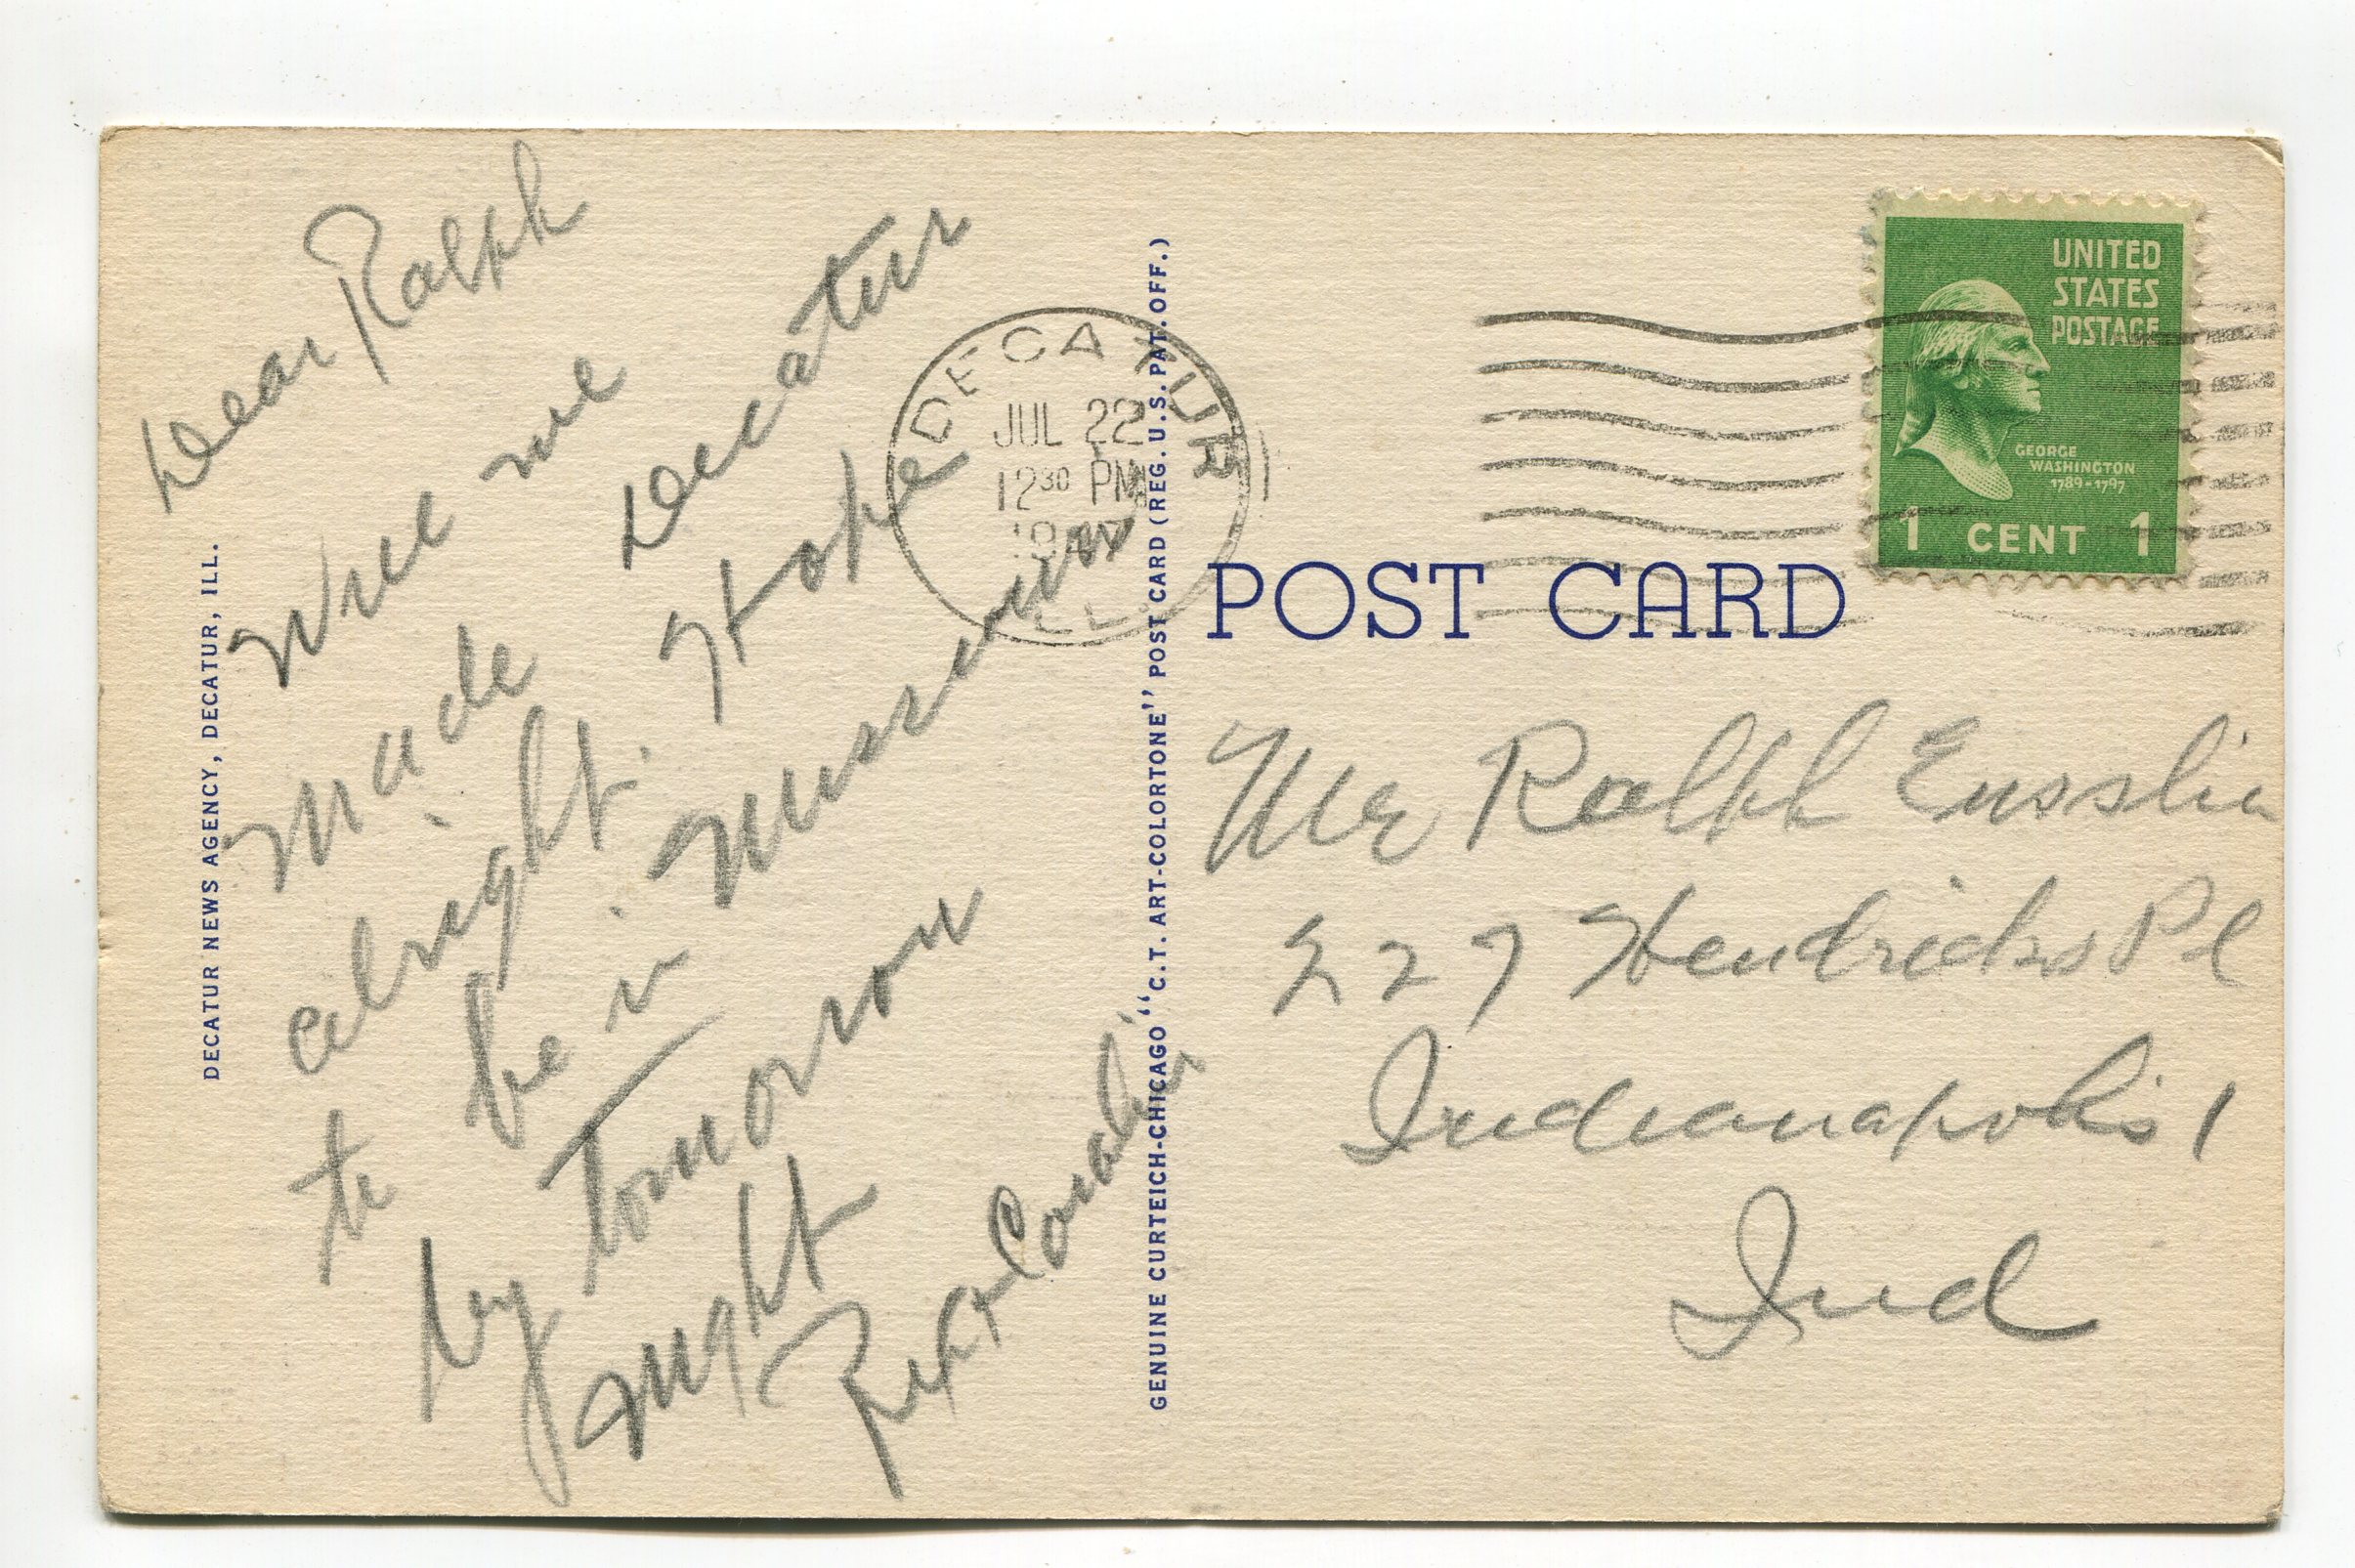 Dear Ralph
Well we
made Decatur
alright. Hope
to be in Missouri
by Tomorrow
night
Rex &
DECATUR NEWS AGENCY, DECATUR, ILL.
GENUINE CURTEICH-CHICAGO "C.T. ART-COLORTONE" POST CARD (REG. U.S. PAT. OFF.)
DECATUR
JUL 22
12 30 PM
ILL.
POST CARD
UNITED
STATES
POSTAGE
GEORGE
WASHINGTON
1789-1797
1 CENT 1
Mr Ralph Ensslin
227 Hendricks Pl
Indianapolis 1
Ind